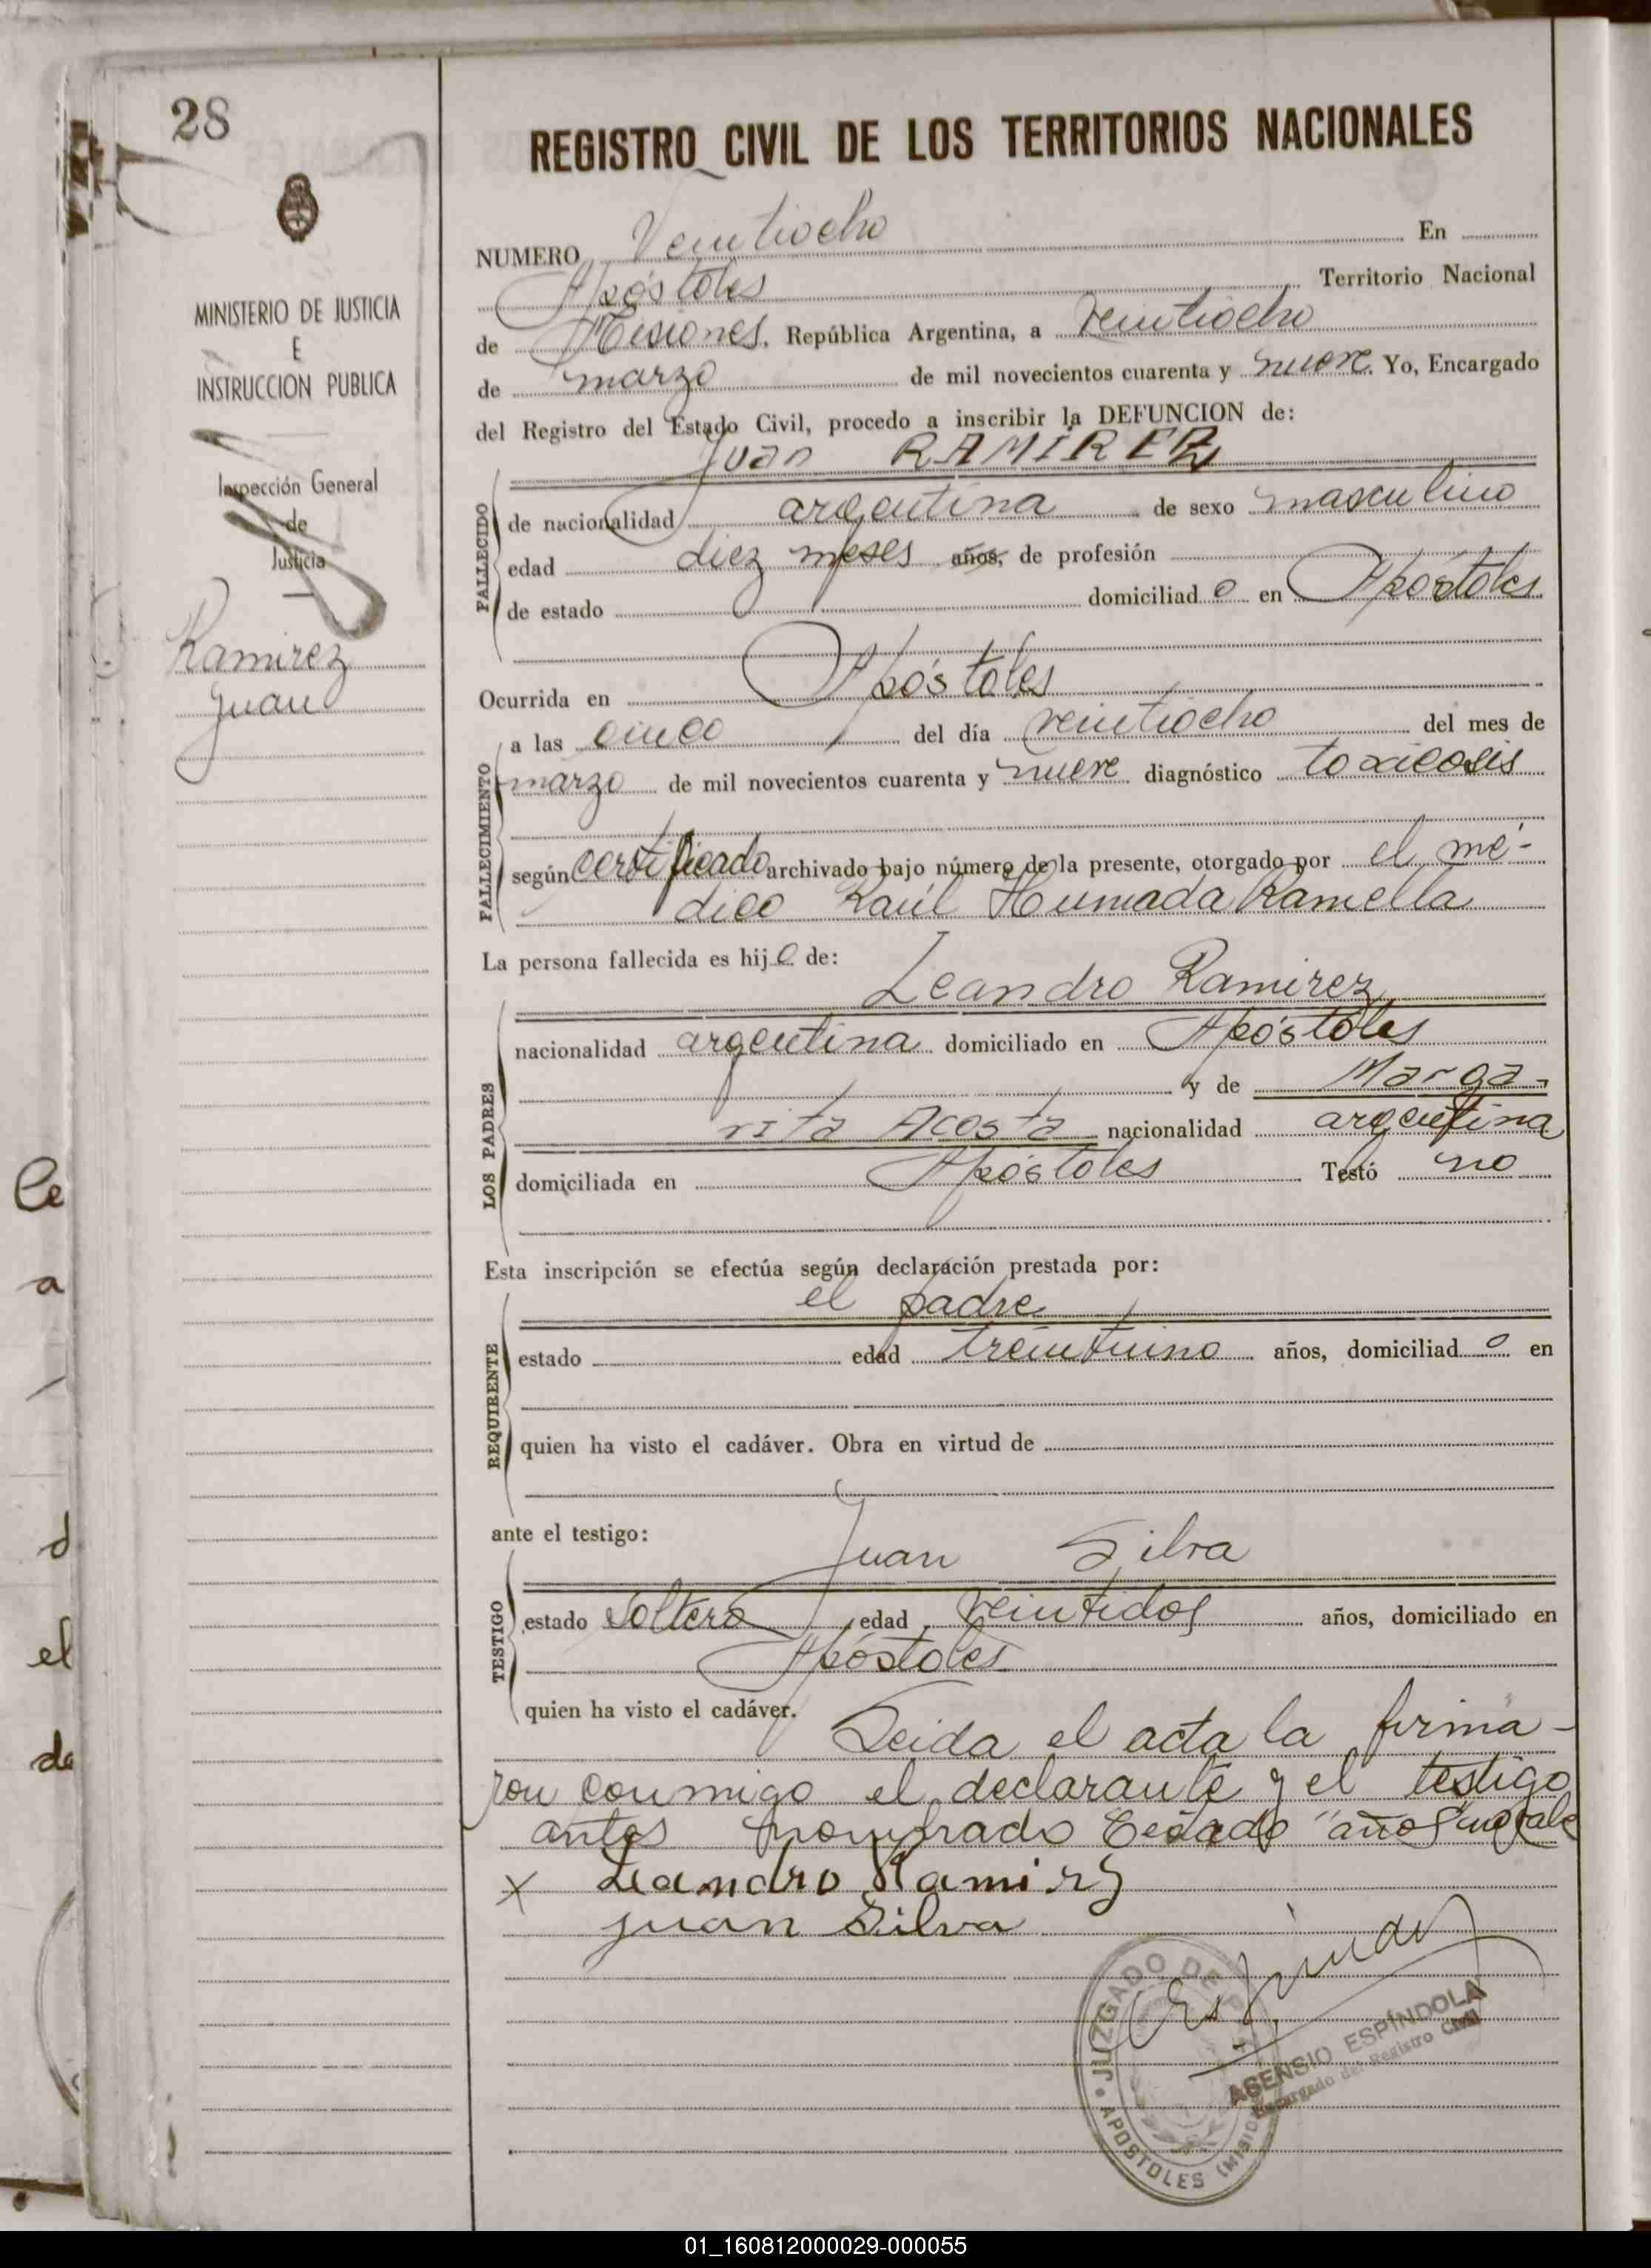 28
MINISTERIO DE JUSTICIA
E
INSTRUCCION PUBLICA
Inspección General
de
Justicia
Ramirez
Juan
REGISTRO CIVIL DE LOS TERRITORIOS NACIONALES
NUMERO Veintiocho En
Apóstoles Territorio Nacional
de Misiones, República Argentina, a veintiocho
de marzo de mil novecientos cuarenta y nueve. Yo, Encargado
del Registro del Estado Civil, procedo a inscribir la DEFUNCION de:
Juan RAMÍREZ
FALLECIDO
de nacionalidad argentina de sexo masculino
edad diez meses años, de profesión
de estado domiciliado en Apóstoles
Ocurrida en Apóstoles
FALLECIMIENTO
a las cinco del día veintiocho del mes de
marzo de mil novecientos cuarenta y nueve diagnóstico toxicosis
según certificado archivado bajo número de la presente, otorgado por el mé-
dico Raúl Humada Ramella
La persona fallecida es hijo de:
Leandro Ramirez
LOS PADRES
nacionalidad argentina domiciliado en Apóstoles
y de Marga-
rita Acosta nacionalidad argentina
domiciliada en Apóstoles Testó no
Esta inscripción se efectúa según declaración prestada por:
el padre
REQUIRENTE
estado edad treintiuno años, domiciliado en
quien ha visto el cadáver. Obra en virtud de
ante el testigo:
Juan Silva
TESTIGO
estado soltero edad veintidos años, domiciliado en
Apóstoles
quien ha visto el cadáver.
Leida el acta la firma-
ron conmigo el declarante y el testigo
antes nombrado "años" no vale
x Leandro Ramirz
juan Silva
JUZGADO DE PAZ
APOSTOLES
ASENSIO ESPÍNDOLA
Encargado del Registro Civil
Ce
a
d
el
de
01_160812000029-000055